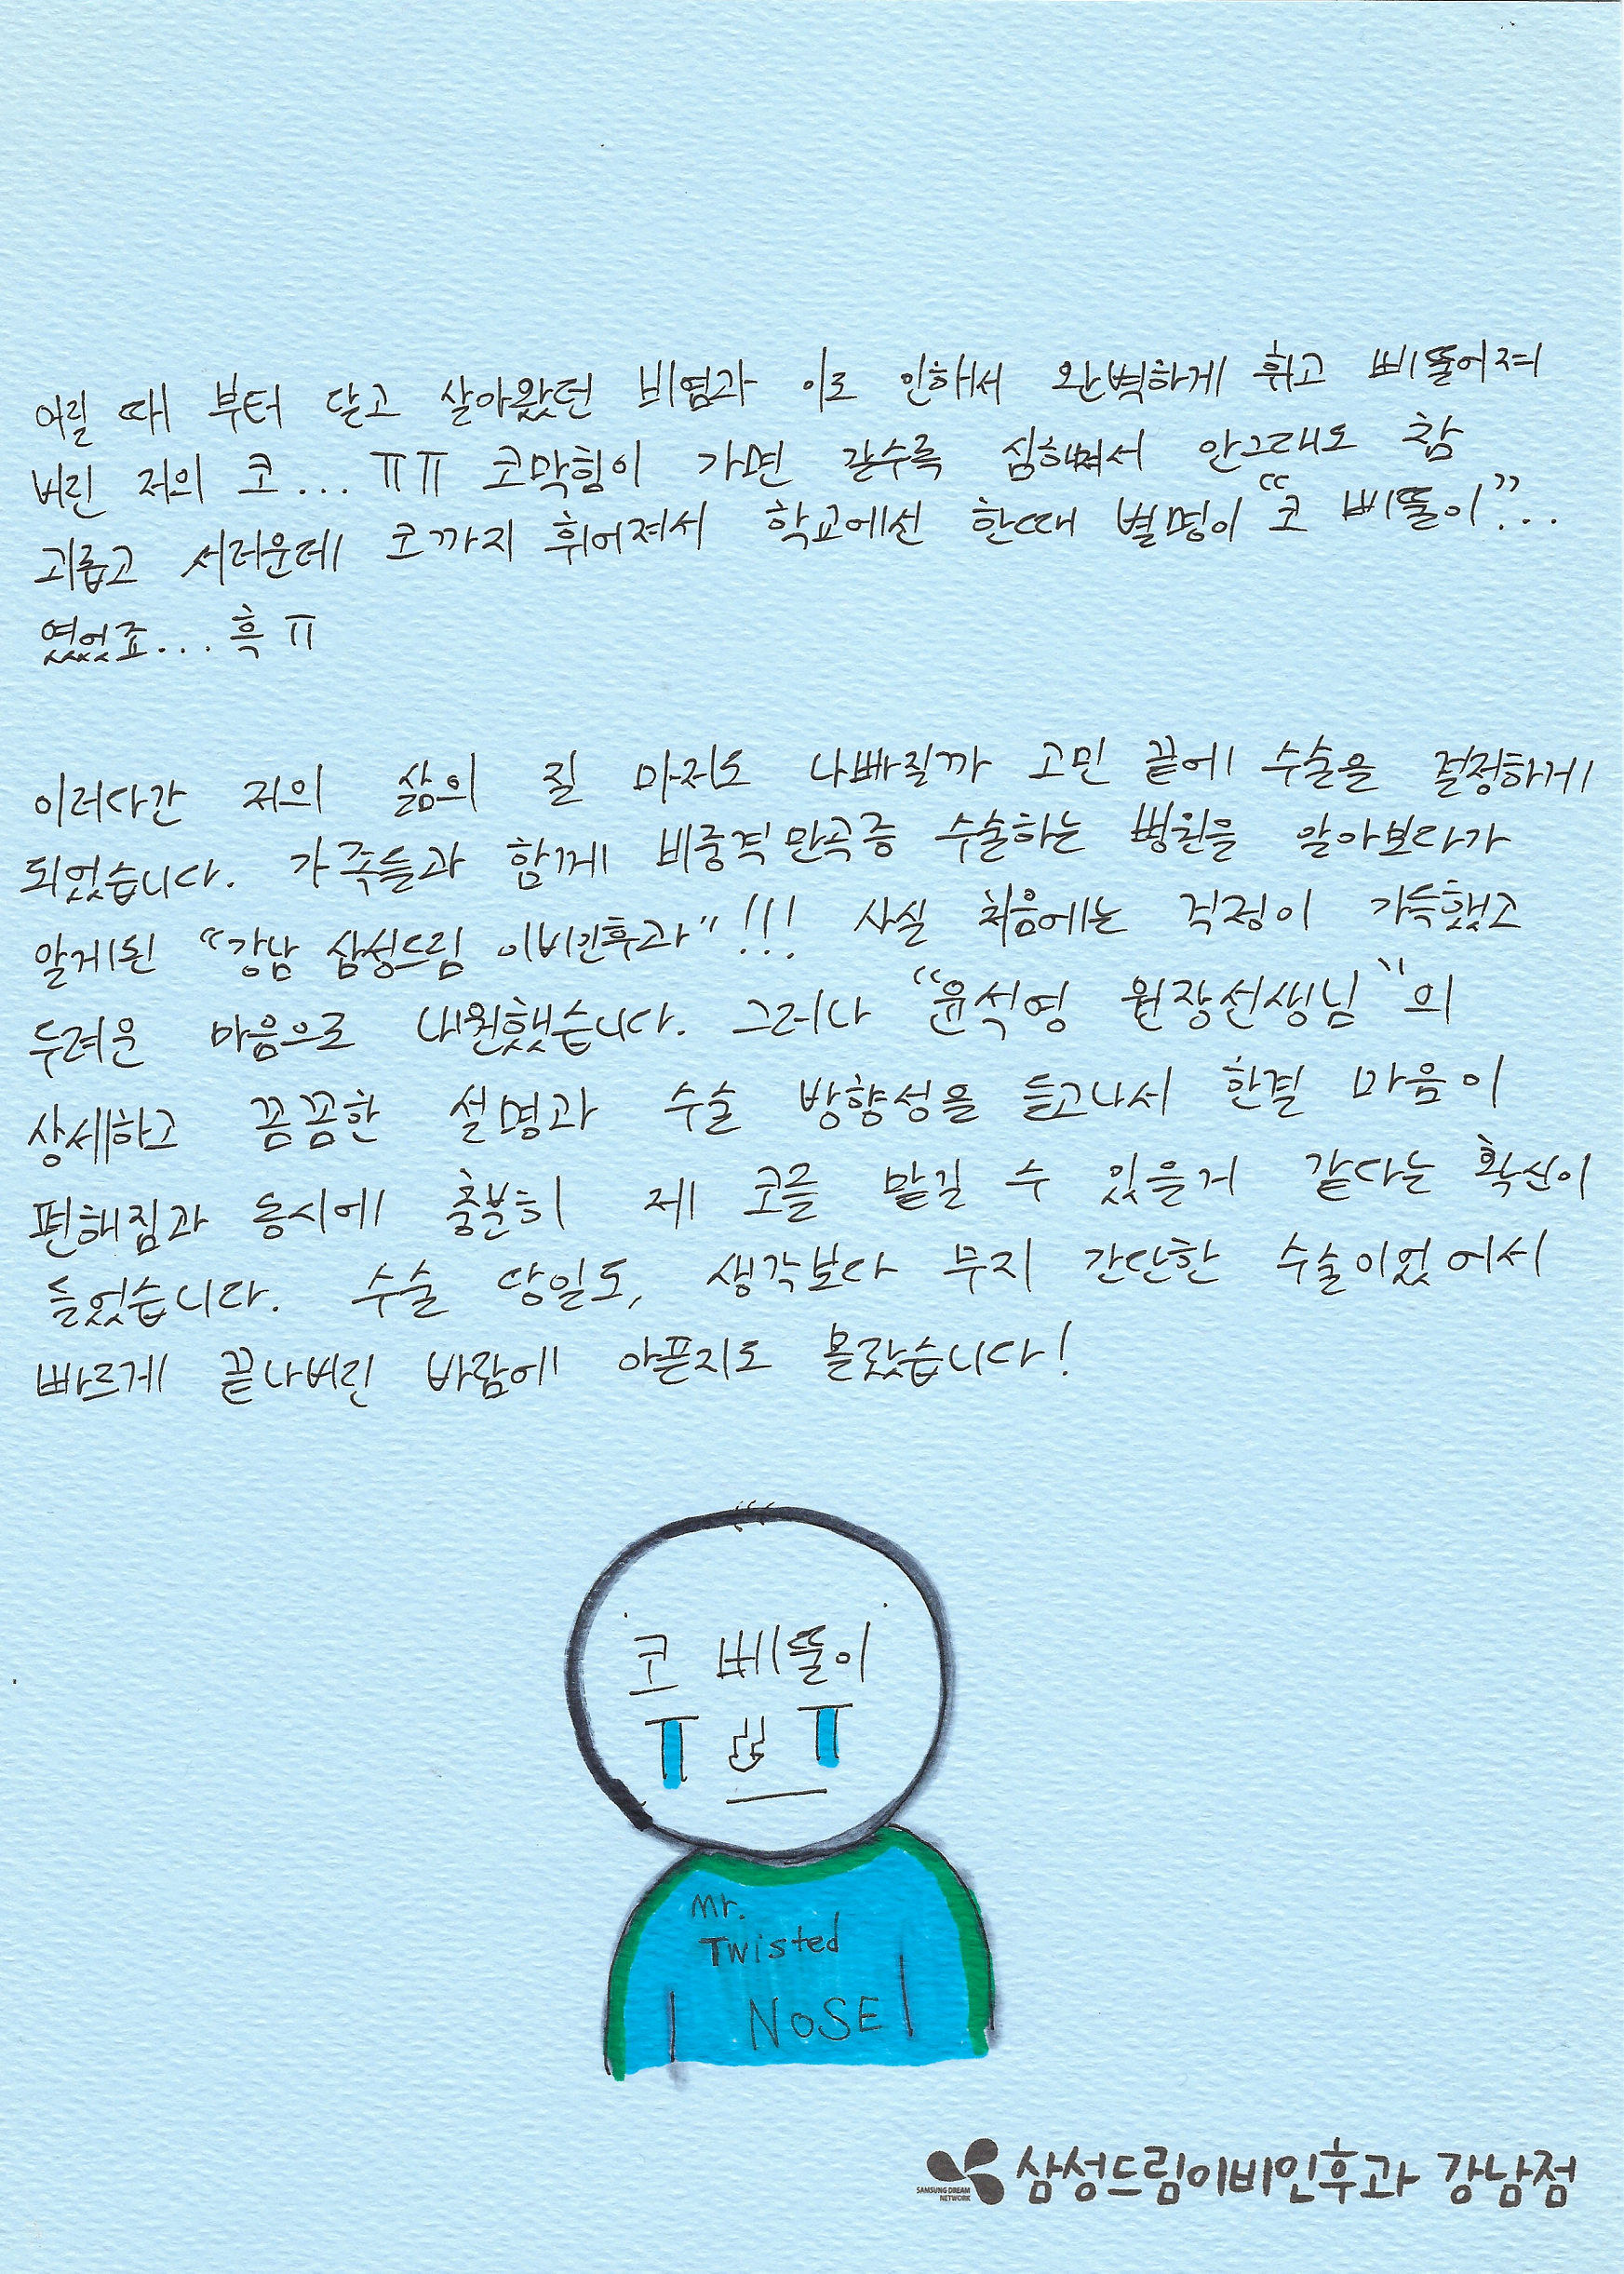 어릴 때 부터 달고 살아왔던 비염과 이로 인해서 완벽하게 휘고 삐뚤어져
버린 저의 코... ㅠㅠ 코막힘이 가면 갈수록 심해져서 안그래도 참
괴롭고 서러운데 코까지 휘어져서 학교에선 한때 별명이 "코 삐뚤이"...
였었죠... 흑 ㅠ
이러다간 저의 삶의 질 마저도 나빠질까 고민 끝에 수술을 결정하게
되었습니다. 가족들과 함께 비중격만곡증 수술하는 병원을 알아보다가
알게된 "강남 삼성드림 이비인후과"!!! 사실 처음에는 걱정이 가득했고
두려운 마음으로 내원했습니다. 그러나 "윤석영 원장선생님"의
상세하고 꼼꼼한 설명과 수술 방향성을 듣고나서 한결 마음이
편해짐과 동시에 충분히 제 코를 맡길 수 있을거 같다는 확신이
들었습니다. 수술 당일도, 생각보다 무지 간단한 수술이었어서
빠르게 끝나버린 바람에 아픈지도 몰랐습니다!
코 삐뚤이
Mr.
Twisted
NOSE
삼성드림이비인후과 강남점
SAMSUNG DREAM
NETWORK